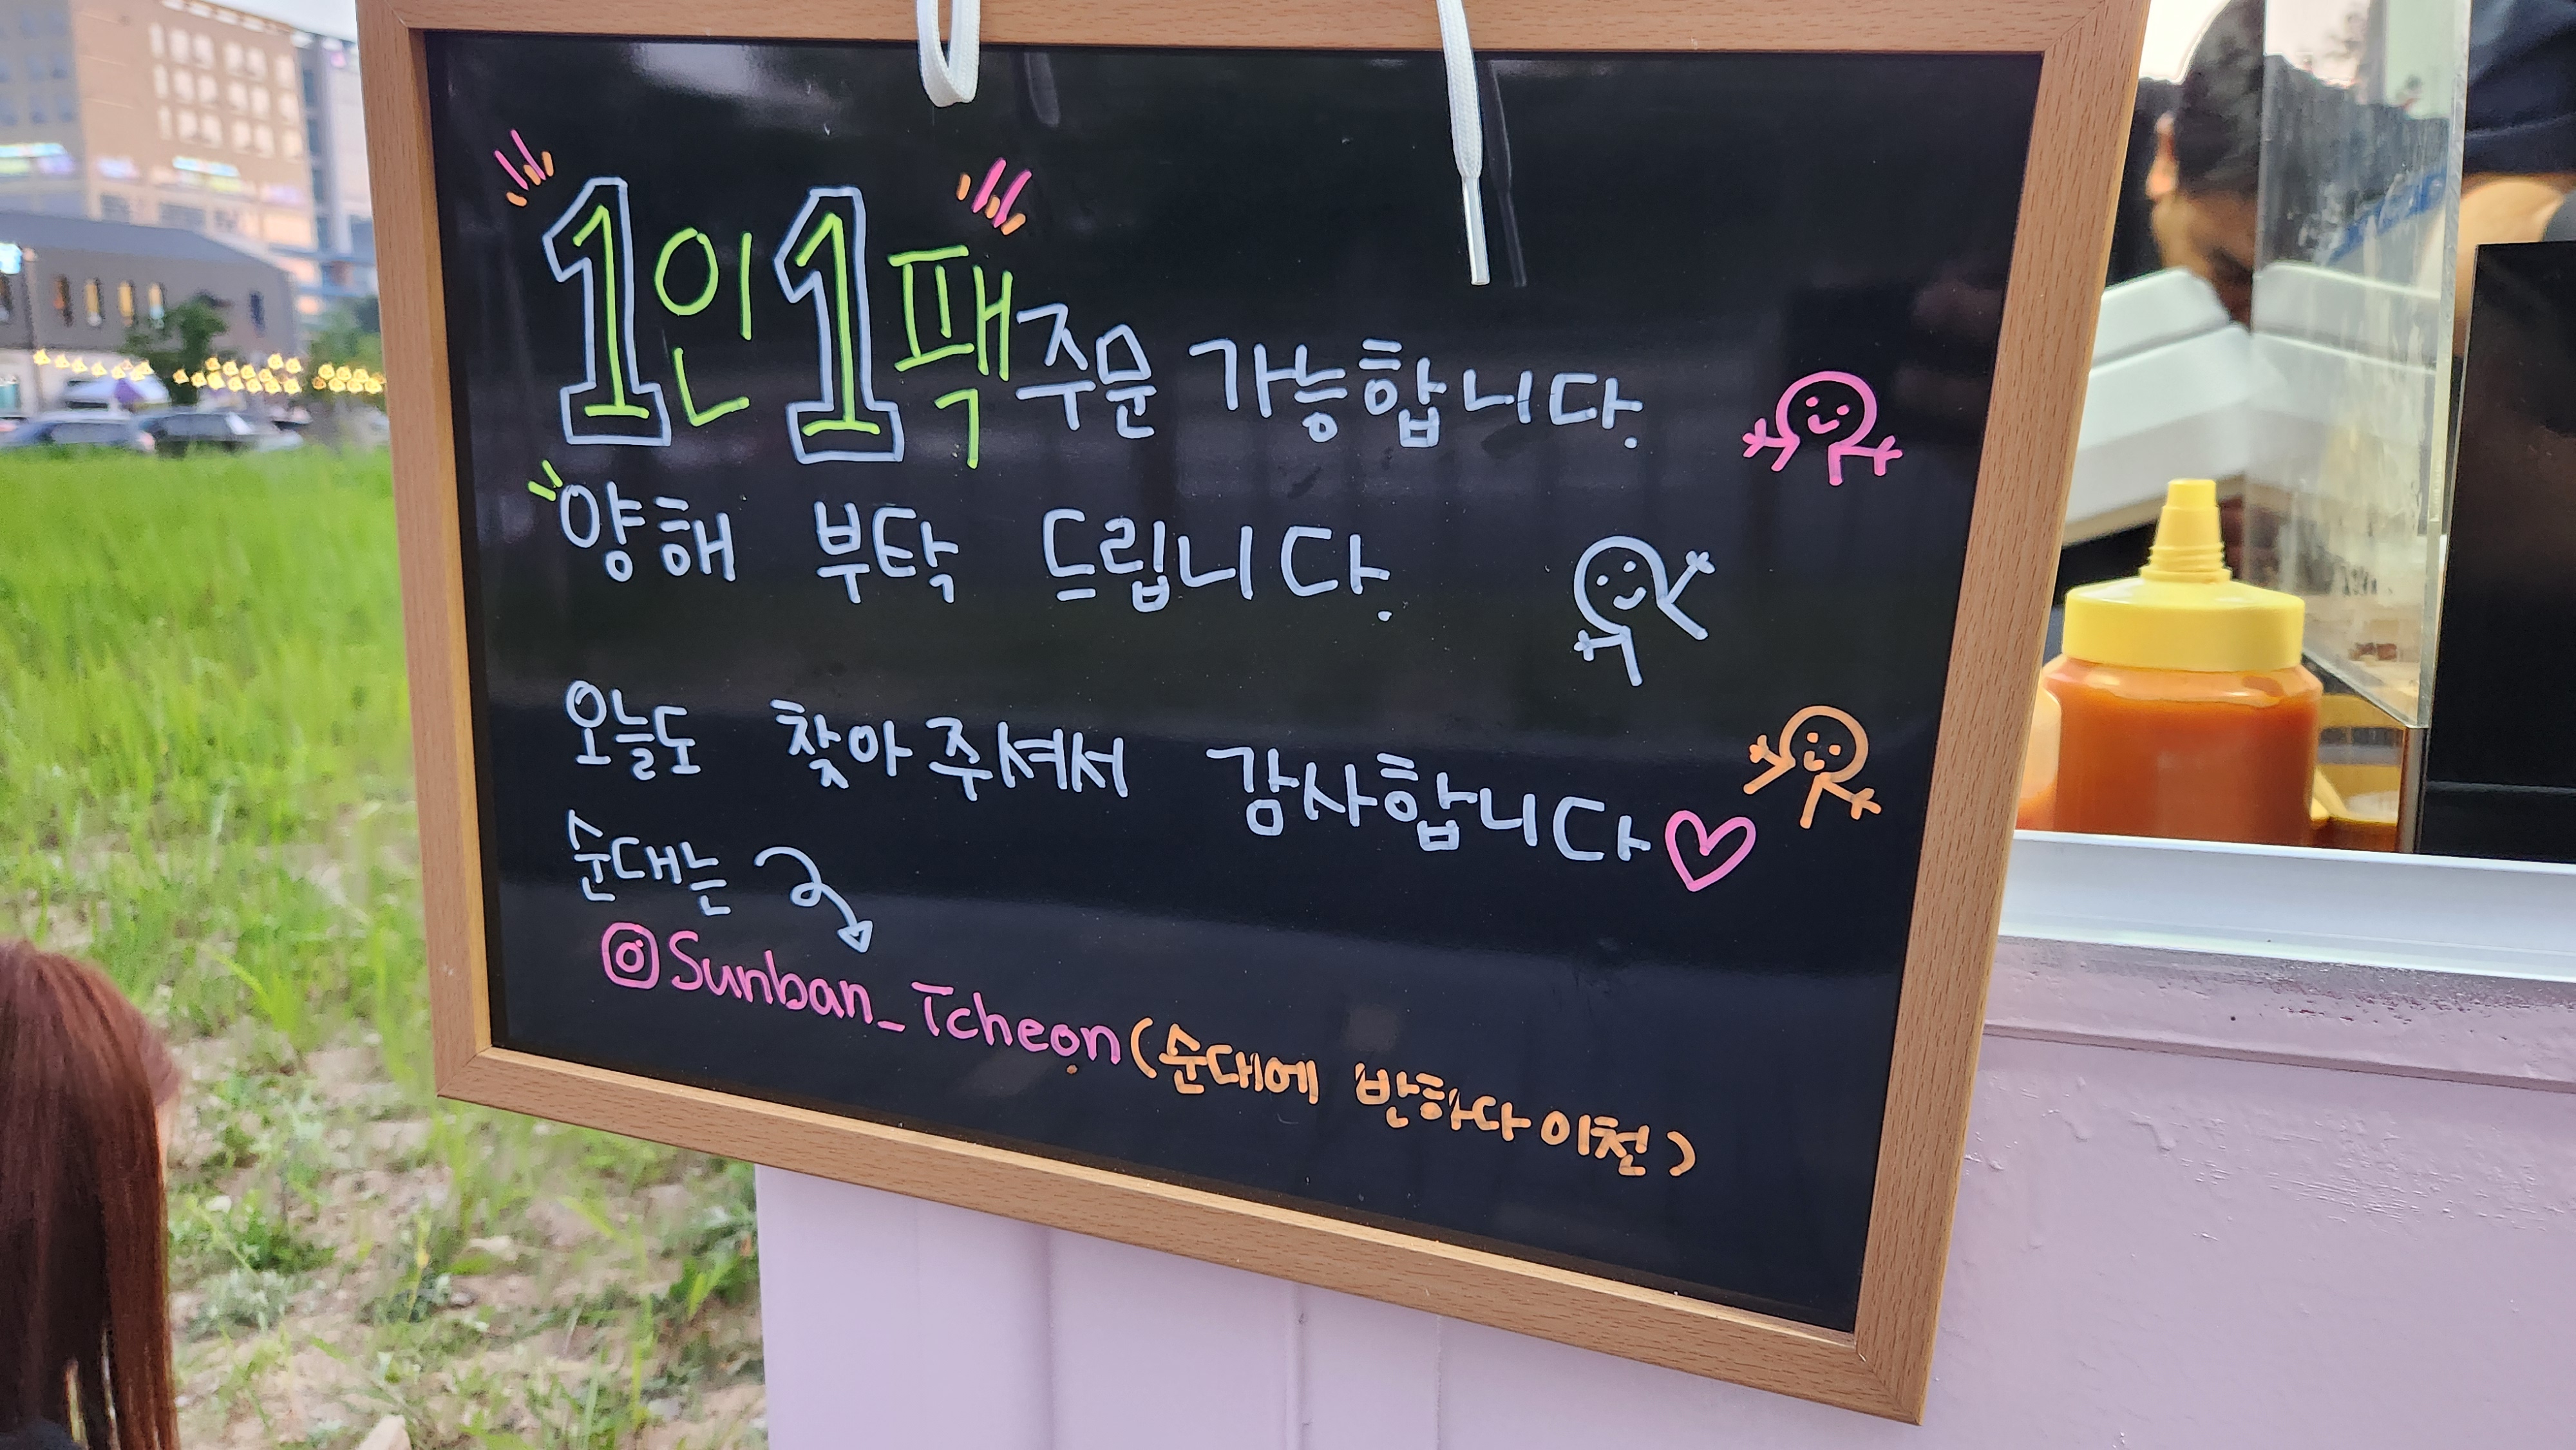 1인 1팩 주문 가능합니다.
양해 부탁 드립니다.
오늘도 찾아주셔서 감사합니다♡
순대는
Sunban_Icheon (순대에 반하다 이천)